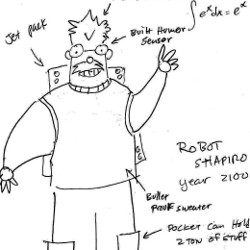 ∫eˣdx = eˣ
Jet pack
Built Humor
Sensor
ROBOT
SHAPIRO
year 2100
Bullet
Proof sweater
Pocket can Hold
2 Ton of stuff